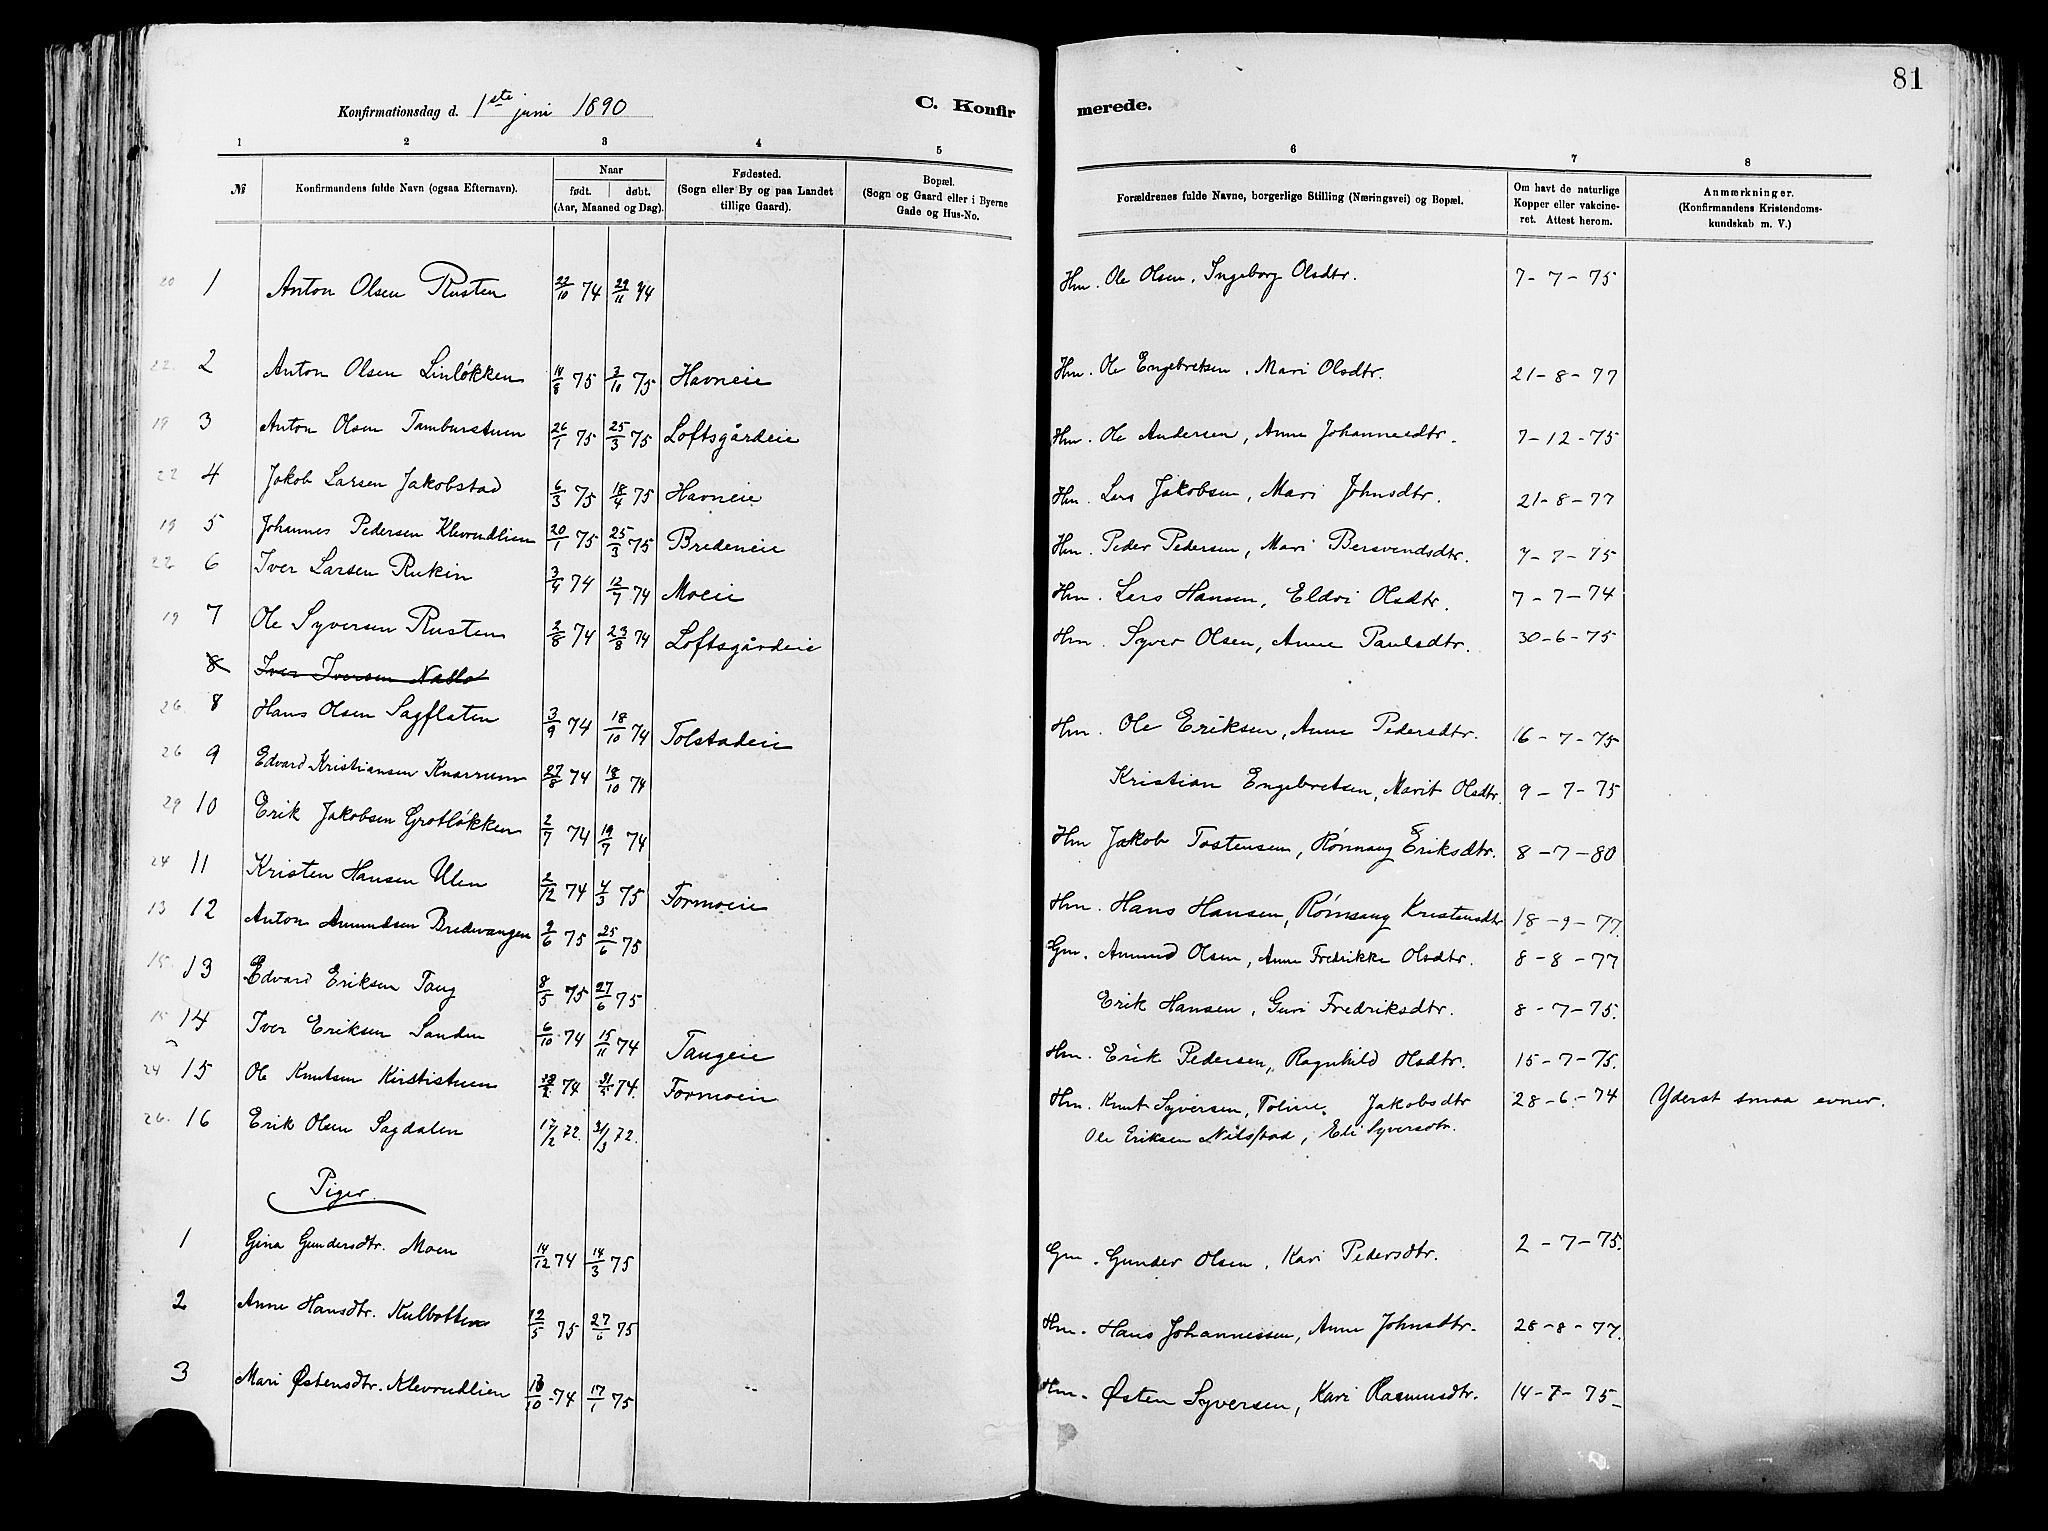 81
Konfirmationsdag d. 1ste juni 1890
C. Konfir merede.
1 2 3 4 5 6 7 8
№ Konfirmandens fulde Navn (ogsaa Efternavn). Naar født. døbt. (Aar, Maaned og Dag). Fødested. (Sogn eller By og paa Landet tillige Gaard). Bopæl. (Sogn og Gaard eller i Byerne Gade og Hus-No. Forældrenes fulde Navne, borgerlige Stilling (Næringsvei) og Bopæl. Om havt de naturlige Kopper eller vakcineret. Attest herom. Anmærkninger. (Konfirmandens Kristendomskundskab m. V.)
20 1 Anton Olsen Rusten 22/10 74 29/11 74 Hm. Ole Olsen, Ingeborg Olsdtr. 7-7-75
22. 2 Anton Olsen Linløkken 11/8 75 3/10 75 Havneie Hm. Ole Engebretsen, Mari Olsdtr. 21-8-77
19 3 Anton Olsen Tamburstuen 26/1 75 25/3 75 Loftsgårdeie Hm. Ole Andersen, Anne Johannesdtr. 7-12-75
22 4 Jakob Larsen Jakobstad 6/3 75 18/4 75 Havneie Hm. Lars Jakobsen, Mari Johnsdtr. 21-8-77
19 5 Johannes Pedersen Klevrudlien 20/1 75 25/3 75 Bredeneie Hm. Peder Pedersen, Mari Bersvendsdtr. 7-7-75
22 6 Iver Larsen Rukin 3/4 74 12/7 74 Moeie Hm. Lars Hansen, Eldri Olsdtr. 7-7-74
19 7 Ole Syversen Rusten 2/8 74 23/8 74 Loftsgårdeie Hm. Syver Olsen, Anne Paulsdtr. 30-6-75
8 Iver Iversen
26. 8 Hans Olsen Sagflaten 3/9 74 18/10 74 Tolstadeie Hm. Ole Eriksen, Anne Pedersdtr. 16-7-75
26 9 Edvard Kristiansen Knarrum 27/8 74 18/10 74 Kristian Engebretsen, Marit Olsdtr. 9-7-75
29 10 Erik Jakobsen Grotløkken 2/7 74 19/7 74 Hm Jakob Tostensen, Rønnaug Eriksdtr. 8-7-80
24 11 Kristen Hansen Ulen 2/12 74 4/3 75 Formoeie Hm. Hans Hansen, Rønnaug Kristensdtr 18-9-77.
13 12 Anton Amundsen Bredevangen 9/6 75 25/6 75 Gm. Amund Olsen, Anne Fredrikke Olsdtr. 8-8-77
15. 13 Edvard Eriksen Tang 8/5 75 27/6 75 Erik Hansen, Guri Fredriksdtr. 8-7-75.
15 14 Iver Eriksen Sanden 6/10 74 15/11 74 Tangeie Hm. Erik Pedersen, Ragnhild Olsdtr. 15-7-75.
24 15 Ole Knutsen Kirstistuen 74 74. Formoeie Hm. Knut Syversen, Toline Jakobsdtr 28-6-74 Yderst smaa evner.
26. 16 Erik Olsen Sagdalen 17/2 72. 31/3 72. Ole Eriksen Nilsstad, Eli Syversdtr.
Piger.
1 Gina Gundersdtr. Moen 14/12 74 14/3 75 Gm. Gunder Olsen, Kari Pedersdtr. 2-7-75.
2 Anne Hansdtr. Kulbotten 12/5 75 27/6 75 Hm. Hans Johannessen, Anne Johnsdtr. 28-8-77.
3 Mari Østensdtr. Klevrudlien 10 74 17/1 75 Hm. Østen Syversen, Kari Rasmusdtr. 14-7-75